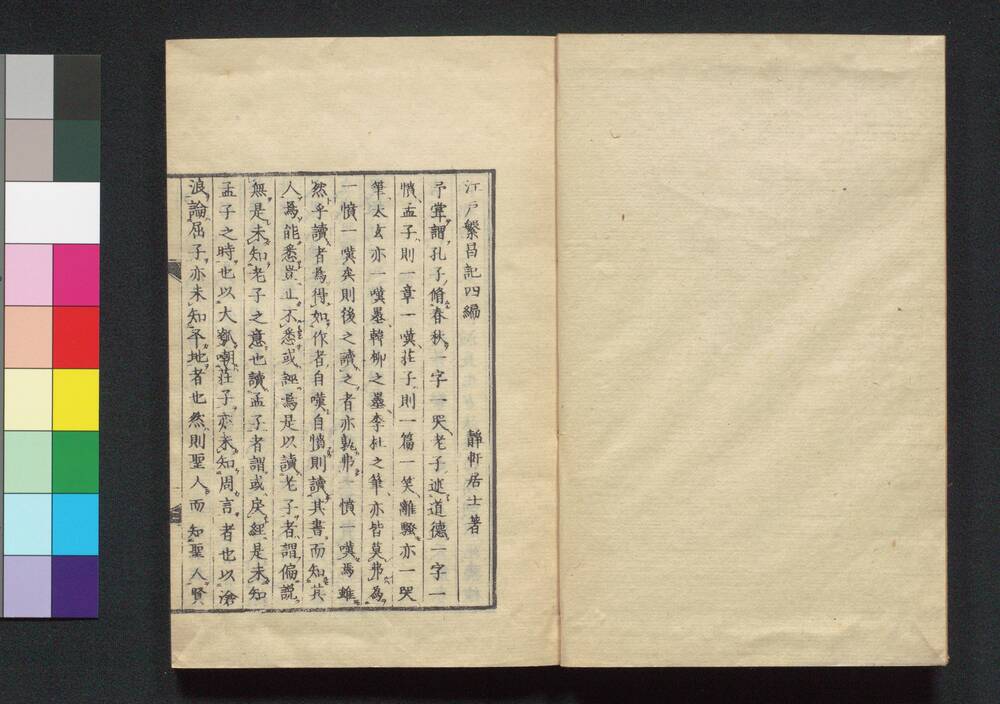 江戸繁昌記四編
靜軒居士著
予嘗謂孔子脩春秋一字一哭老子述道德一字一
憤孟子則一章一嘆莊子則一篇一笑離騷亦一哭
筆太玄亦一嘆墨韓柳之墨李杜之筆亦皆莫弗為
一憤一嘆矣則後之讀之者亦孰弗一憤一嘆焉雖
然乎讀者爲得如作者自嘆自憤則讀其書而知其
人爲能悉豈止不悉或誣焉是以讀老子者謂偏説
無是未知老子之意也讀孟子者謂或戾經是未知
孟子之時也以大瓠嘲莊子亦未知周言者也以滄
浪論屈子亦未知平地者也然則聖人而知聖人賢